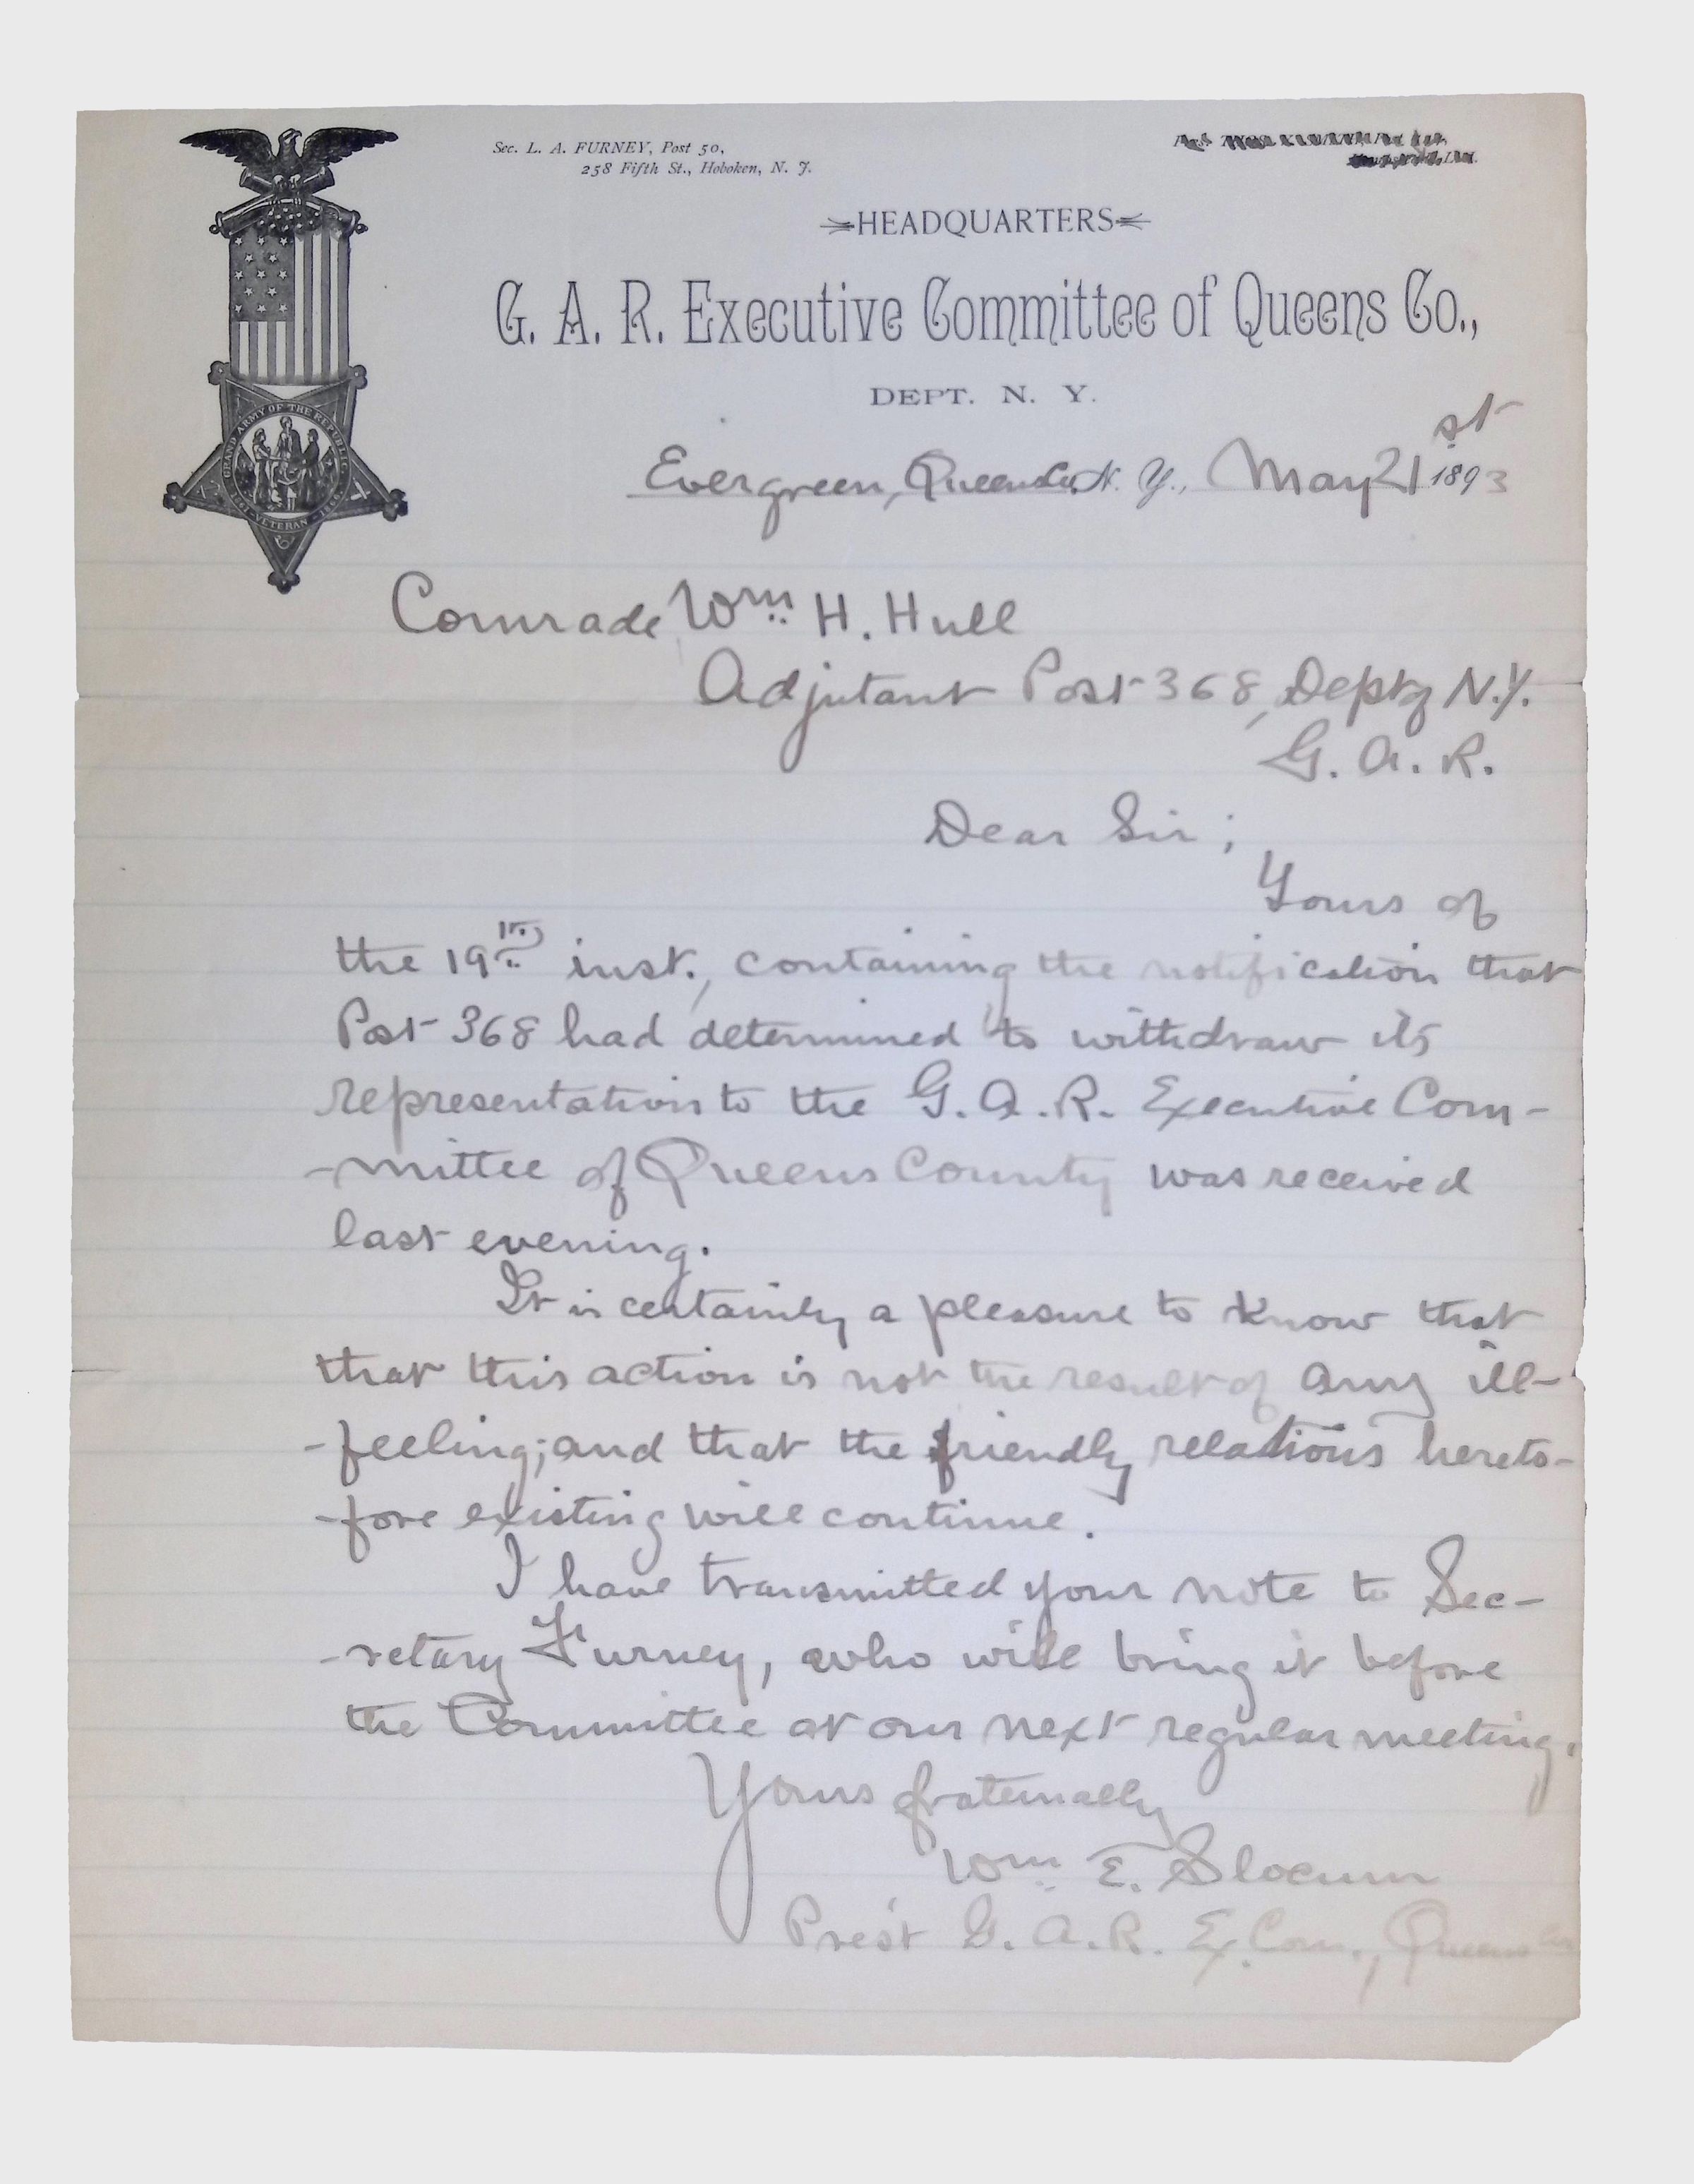 Sec. L. A. FURNEY, Post 50,
258 Fifth St., Hoboken, N. J.
HEADQUARTERS
G. A. R. Executive Committee of Queens Co.,
DEPT. N. Y.
Evergreen, Queens Co., N. Y., May 21st 1893
GRAND ARMY OF THE REPUBLIC
1861 - VETERAN - 1866
Comrade Wm. H. Hull
Adjutant Post 368, Dept of N.Y.
G. A. R.
Dear Sir;
Yours of
the 19th inst., containing the notification that
Post 368 had determined to withdraw its
representation to the G. A. R. Executive Com-
-mittee of Queens County was received
last evening.
It is certainly a pleasure to know that
that this action is not the result of any ill-
-feeling; and that the friendly relations hereto-
-fore existing will continue.
I have transmitted your note to Sec-
-retary Furney, who will bring it before
the Committee at our next regular meeting.
Yours fraternally
Wm. E. Slocum
Pres't G. A. R. Ex. Com., Queens Co